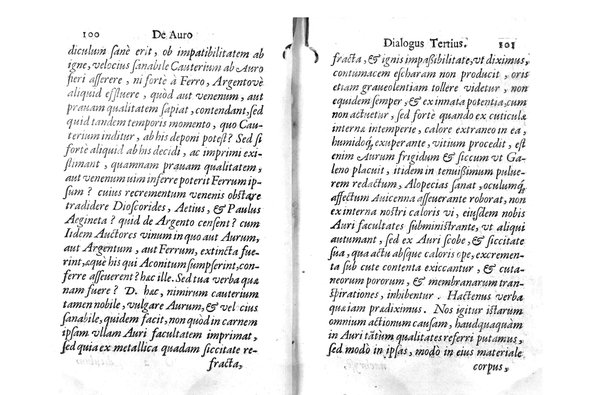 100 De Auro
diculum sanè erit, ob impatibilitatem ab
igne, velocius sanabile Cauterium ab Auro
fieri asserere, ni fortè à Ferro, Argentovè
aliquid effluere, quòd aut venenum, aut
prauam qualitatem sapiat, contendant, sed
quid tandem temporis momento, quo Cau-
terium inditur, ab his deponi potest? Sed si
fortè aliquid ab his decidi, ac imprimi exi-
stimant, quamnam prauam qualitatem,
aut venenum uim inferre poterit Ferrum ip-
sum? cuius recrementum venenis obstare
tradidere Dioscorides, Aetius, & Paulus
Aegineta? quid de Argento censent? cum
Iidem Auctores vinum in quo aut Aurum,
aut Argentum, aut Ferrum, extincta fue-
rint, æque his qui Aconitum sumpserint, con-
ferre asseuerent? hæc ille. Sed tua verba quæ
nam fuere? D. hæc, nimirum cauterium
tamen nobile, vulgare Aurum, & vel cius
sanabile, quidem facit, non quòd in carnem
ipsam ullam Auri facultatem imprimat,
sed quia ex metallica quadam siccitate re-
fracta,
Dialogus Tertius. 101
fracta, & ignis impaßibilitate, vt diximus,
contumacem escharam non producit, oris
etiam graueolentiam tollere videtur, non
equidem semper, & ex innata potentia, cum
non actuetur, sed fortè quando ex cuticulæ
interna intemperie, calore extraneo in ea,
humidoq́ exuperante, vitium procedit, est
enim Aurum frigidum & siccum vt Ga-
leno placuit, itidem in tenuißimum pulue-
rem redactum, Alopecias sanat, oculumq́
affectum Auicenna asseuerante roborat, non
ex interna nostri caloris vi, eiusdem nobis
Auri facultates subministrante, vt aliqui
autumant, sed ex Auri scobe, & siccitate
sua, quæ actu absque caloris ope, excremen-
ta sub cute contenta exiccantur, & cuta-
neorum pororum, & membranarum tran-
spirationes, inhibentur. Hactenus verba
quætiam prædiximus. Nos igitur istarum
omnium actionum causam, haudquaquàm
in Auri tātùm qualitates referri putamus,
sed modò in ipsas, modò in eius materiale
corpus,